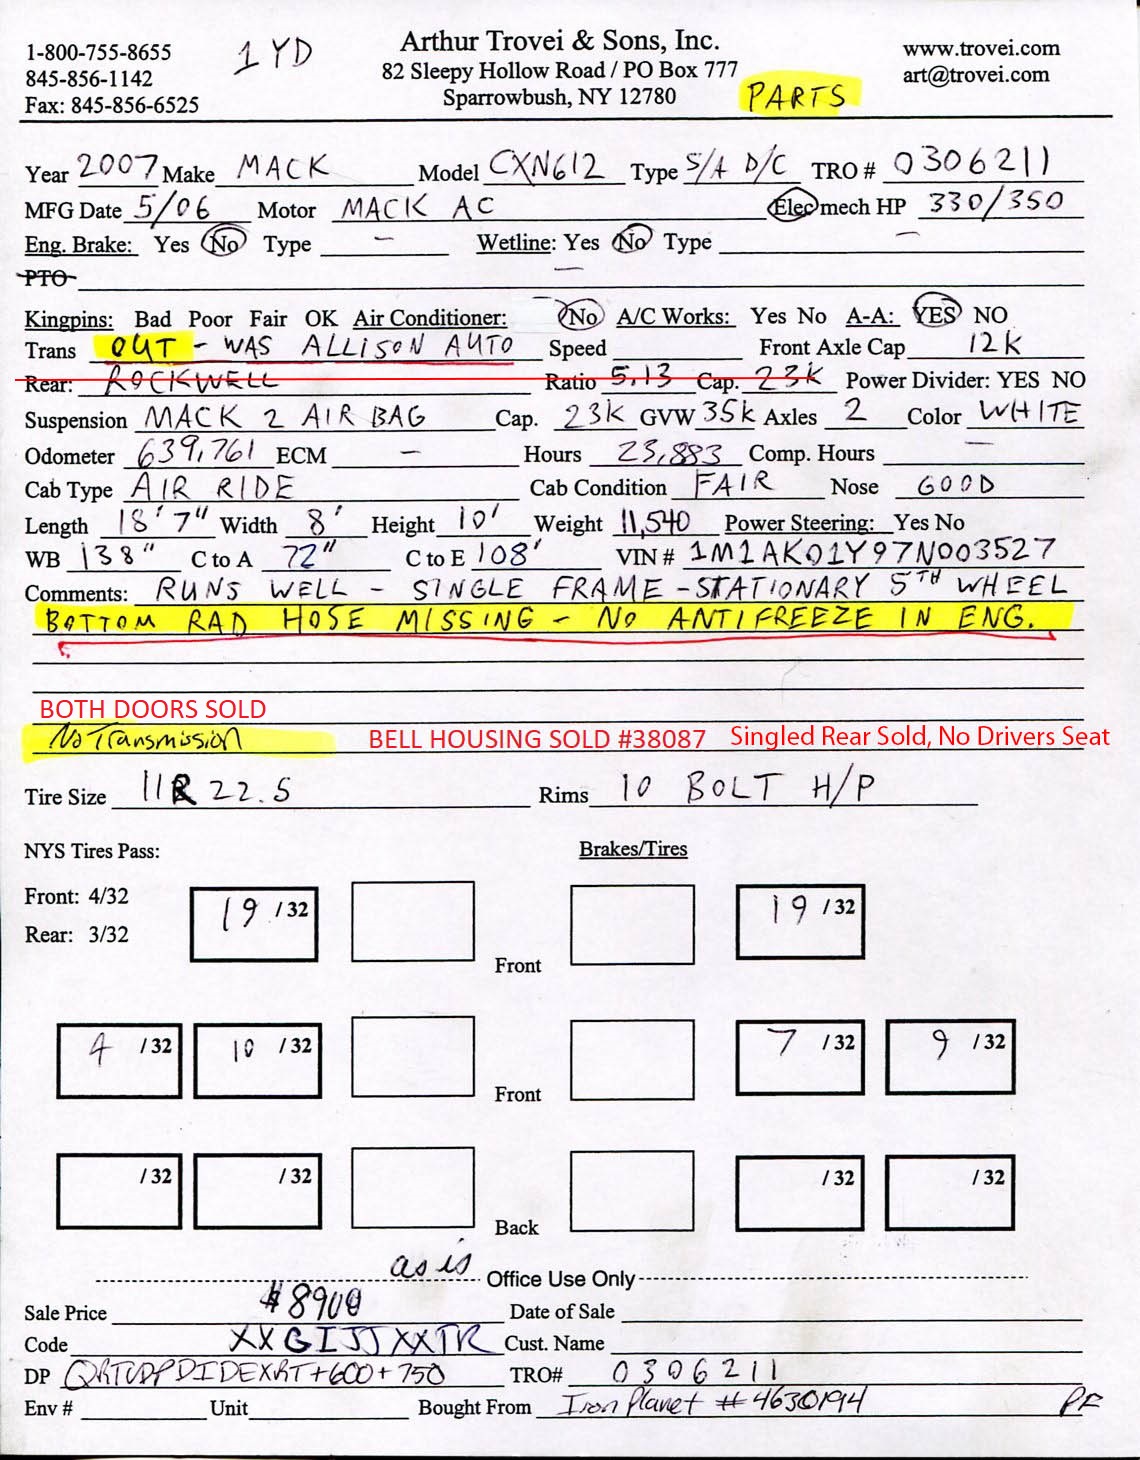 1-800-755-8655
845-856-1142
Fax: 845-856-6525
1 YD
Arthur Trovei & Sons, Inc.
82 Sleepy Hollow Road / PO Box 777
Sparrowbush, NY 12780
www.trovei.com
art@trovei.com
PARTS
Year 2007 Make MACK Model CXN612 Type S/A D/C TRO # 0306211
MFG Date 5/06 Motor MACK AC Elec mech HP 330/350
Eng. Brake: Yes No Type - Wetline: Yes No Type -
PTO -
Kingpins: Bad Poor Fair OK Air Conditioner: No A/C Works: Yes No A-A: YES NO
Trans OUT - WAS ALLISON AUTO Speed Front Axle Cap 12K
Rear: ROCKWELL Ratio 5.13 Cap. 23K Power Divider: YES NO
Suspension MACK 2 AIR BAG Cap. 23K GVW 35K Axles 2 Color WHITE
Odometer 639,761 ECM - Hours 23,883 Comp. Hours -
Cab Type AIR RIDE Cab Condition FAIR Nose GOOD
Length 18'7" Width 8' Height 10' Weight 11,540 Power Steering: Yes No
WB 138" C to A 72" C to E 108' VIN # 1M1AK01Y97N003527
Comments: RUNS WELL - SINGLE FRAME - STATIONARY 5TH WHEEL
BOTTOM RAD HOSE MISSING - NO ANTIFREEZE IN ENG.
BOTH DOORS SOLD
No Transmission BELL HOUSING SOLD #38087 Singled Rear Sold, No Drivers Seat
Tire Size 11R 22.5 Rims 10 BOLT H/P
NYS Tires Pass: Brakes/Tires
Front: 4/32
Rear: 3/32
19 /32 19 /32
Front
4 /32 10 /32 7 /32 9 /32
Front
/32 /32 /32 /32
Back
as is
Office Use Only
Sale Price $8900 Date of Sale
Code XXGIJJXXTR Cust. Name
DP +600+750 TRO# 0306211
Env # Unit Bought From Iron Planet #4630194 PF